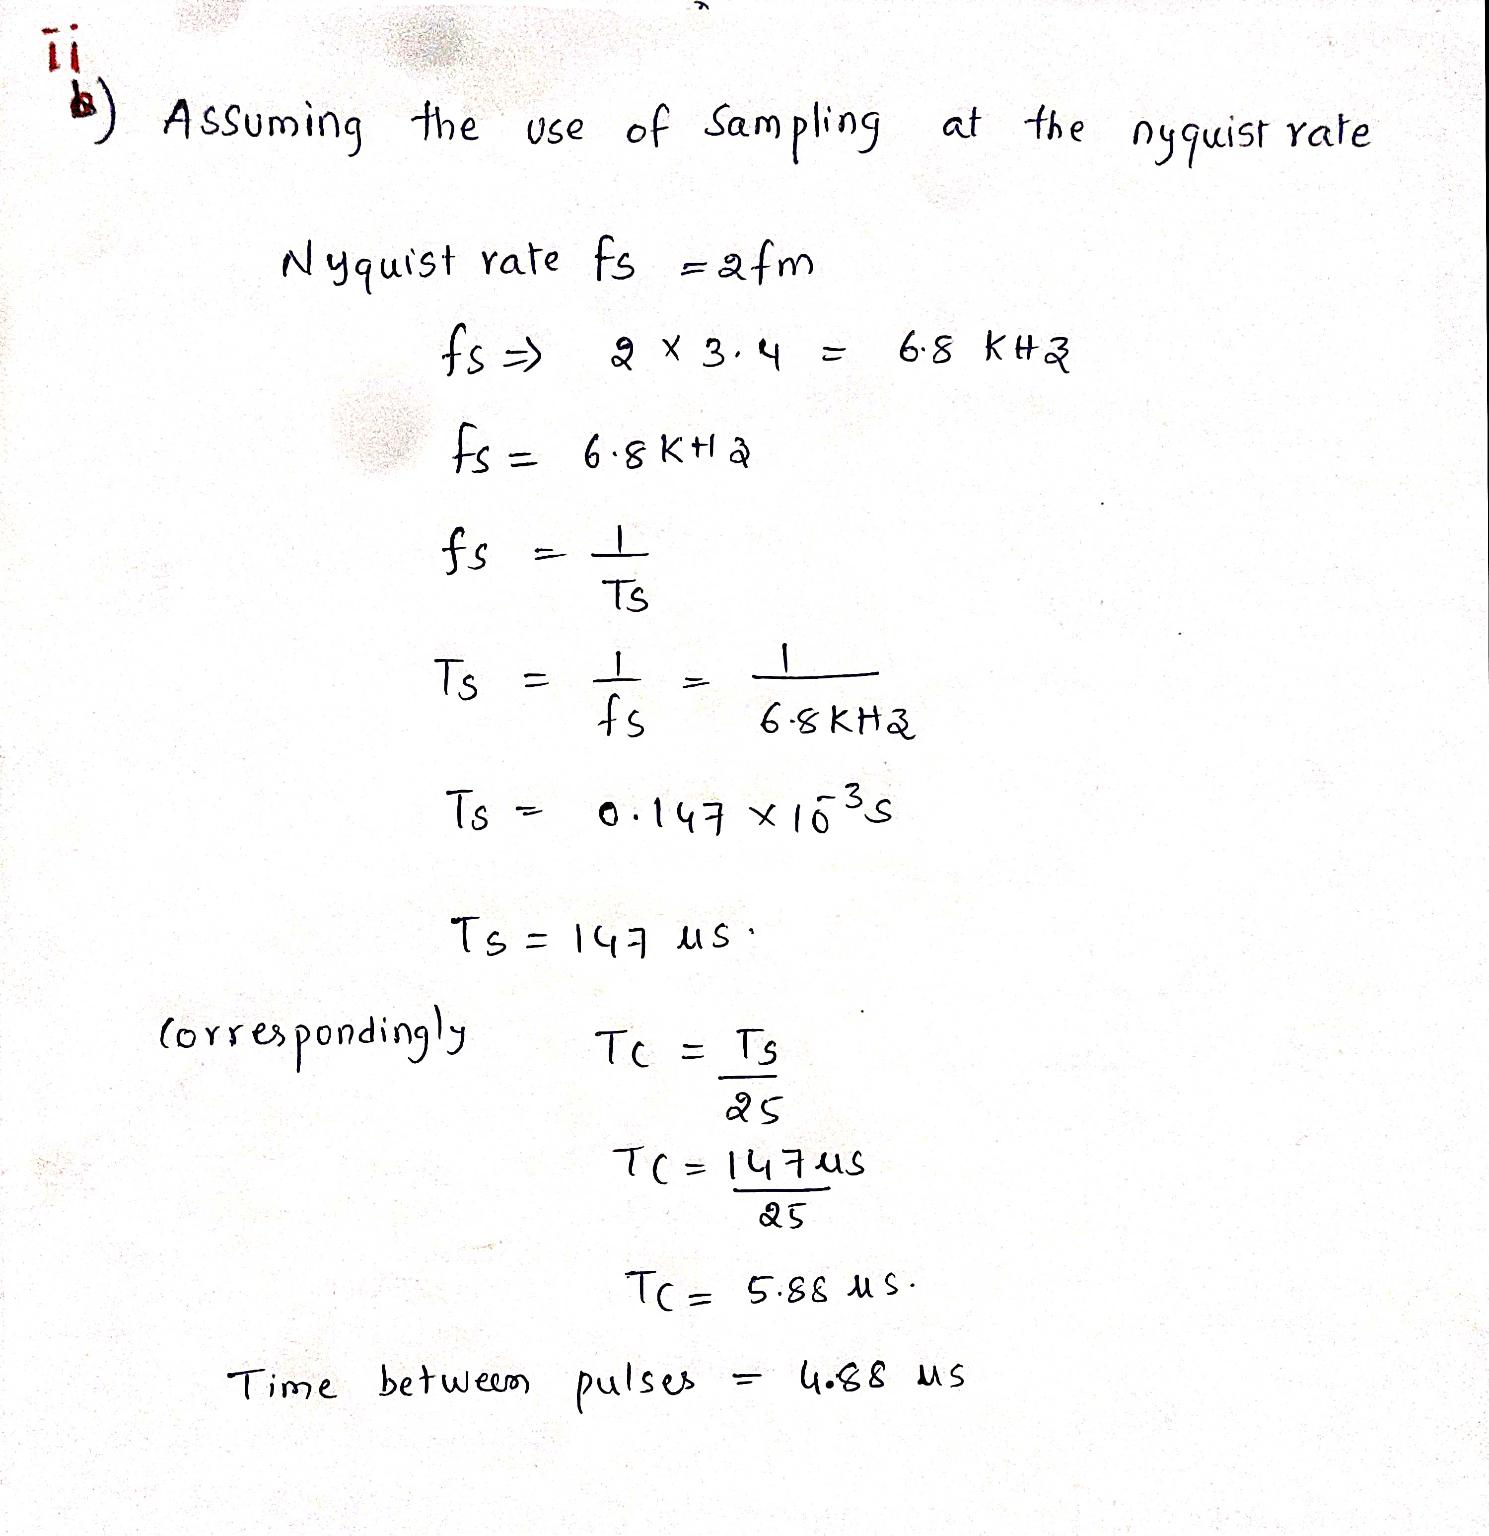 ii
b) Assuming the use of Sampling at the nyquist rate
Nyquist rate fs = 2fm
fs ⇒ 2 × 3.4 = 6.8 KHz
fs = 6.8 KHz
fs = 1/Ts
Ts = 1/fs = 1/6.8KHz
Ts = 0.147 × 10⁻³s
Ts = 147 μs.
Correspondingly Tc = Ts/25
Tc = 147μs/25
Tc = 5.88 μs.
Time between pulses = 4.88 μs